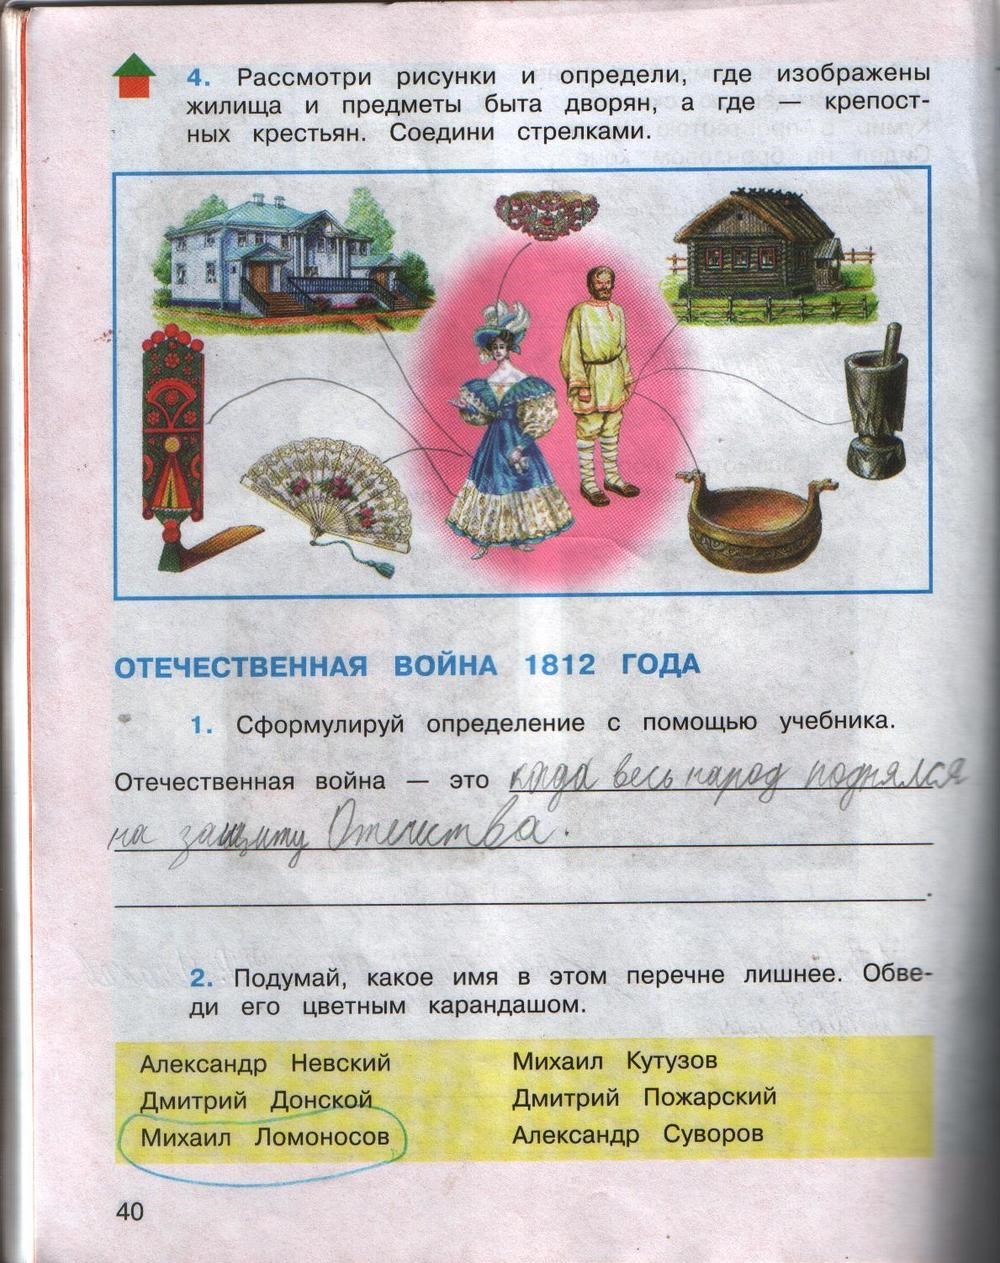 4. Рассмотри рисунки и определи, где изображены
жилища и предметы быта дворян, а где — крепост-
ных крестьян. Соедини стрелками.
ОТЕЧЕСТВЕННАЯ ВОЙНА 1812 ГОДА
1. Сформулируй определение с помощью учебника.
Отечественная война — это когда весь народ поднялся
на защиту Отечества.
2. Подумай, какое имя в этом перечне лишнее. Обве-
ди его цветным карандашом.
Александр Невский
Дмитрий Донской
Михаил Ломоносов
Михаил Кутузов
Дмитрий Пожарский
Александр Суворов
40